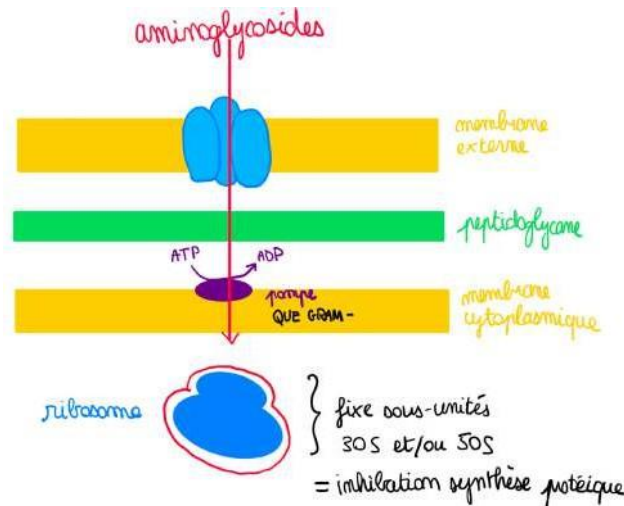 aminoglycosides
membrane
externe
peptidoglycane
ATP
ADP
pompe
QUE GRAM-
membrane
cytoplasmique
ribosome
fixe sous-unités
30S et/ou 50S
= inhibation synthèse protéique